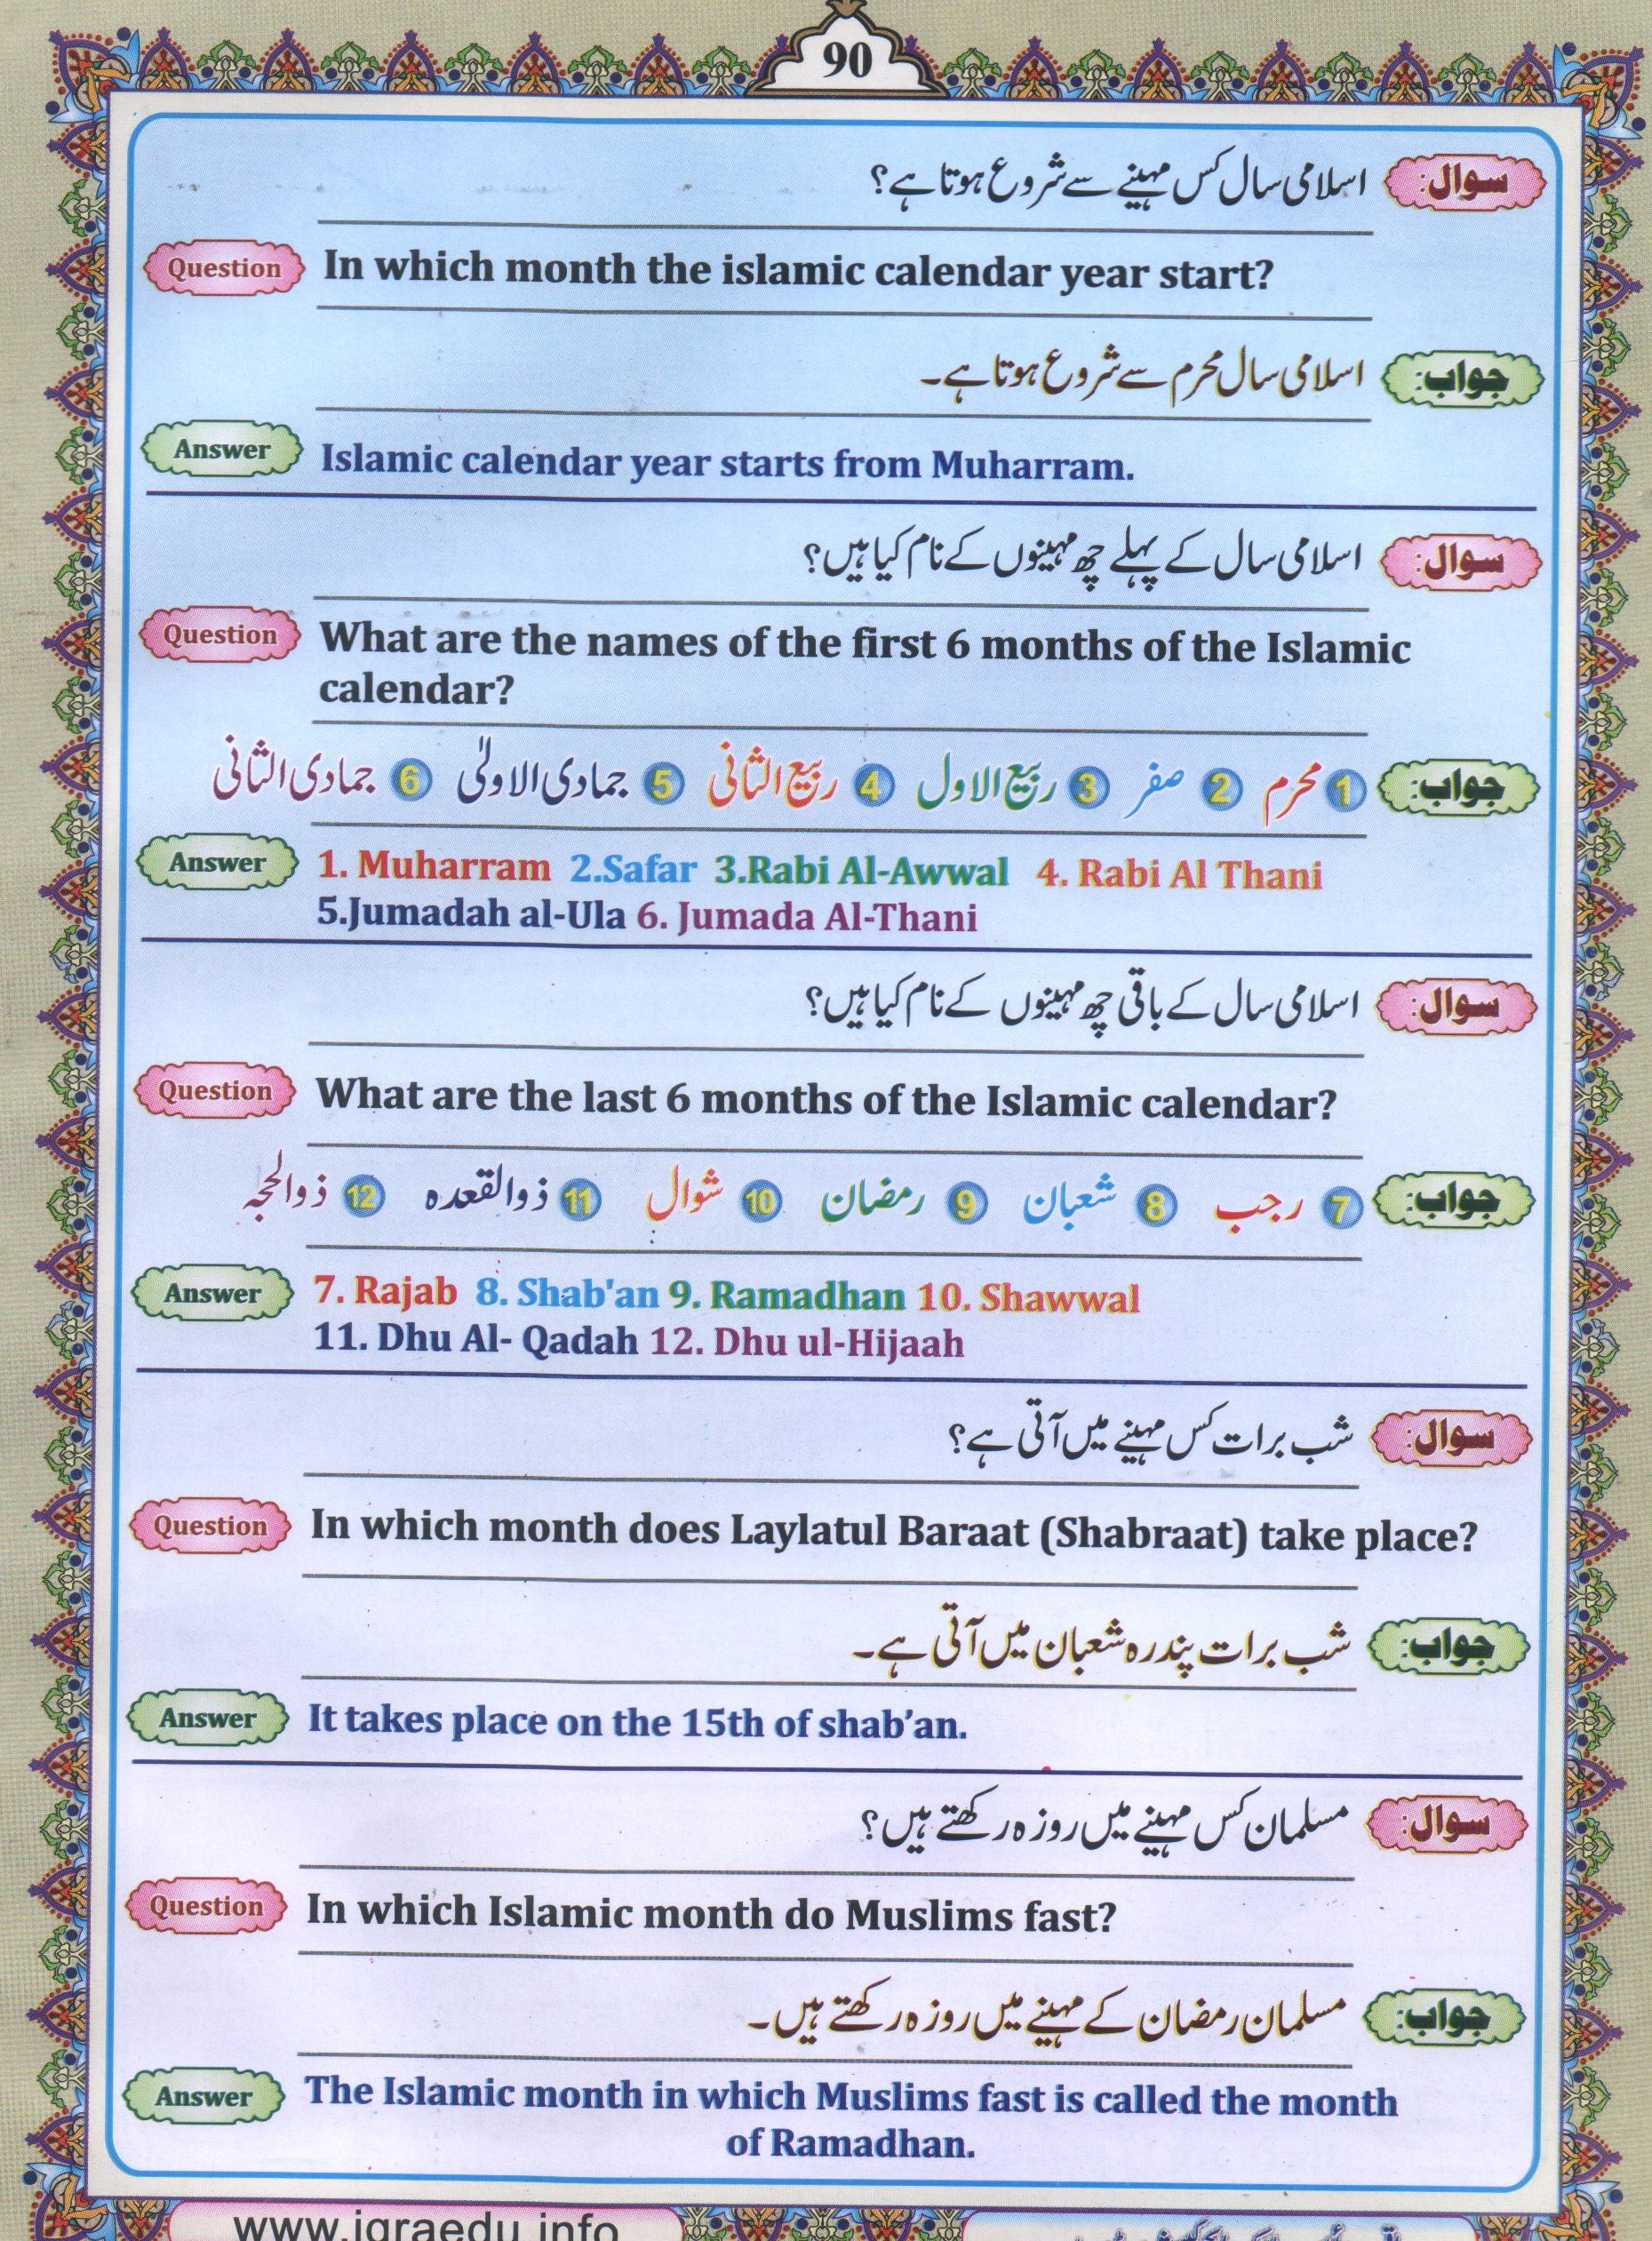 90
سوال: اسلامی سال کس مہینے سے شروع ہوتا ہے؟
Question In which month the islamic calendar year start?
جواب: اسلامی سال محرم سے شروع ہوتا ہے۔
Answer Islamic calendar year starts from Muharram.
سوال: اسلامی سال کے پہلے چھ مہینوں کے نام کیا ہیں؟
Question What are the names of the first 6 months of the Islamic
calendar?
جواب: 1 محرم 2 صفر 3 ربیع الاول 4 ربیع الثانی 5 جمادی الاولیٰ 6 جمادی الثانی
Answer 1. Muharram 2.Safar 3.Rabi Al-Awwal 4. Rabi Al Thani
5.Jumadah al-Ula 6. Jumada Al-Thani
سوال: اسلامی سال کے باقی چھ مہینوں کے نام کیا ہیں؟
Question What are the last 6 months of the Islamic calendar?
جواب: 7 رجب 8 شعبان 9 رمضان 10 شوال 11 ذوالقعدہ 12 ذوالحجہ
Answer 7. Rajab 8. Shab'an 9. Ramadhan 10. Shawwal
11. Dhu Al- Qadah 12. Dhu ul-Hijaah
سوال: شب برات کس مہینے میں آتی ہے؟
Question In which month does Laylatul Baraat (Shabraat) take place?
جواب: شب برات پندرہ شعبان میں آتی ہے۔
Answer It takes place on the 15th of shab’an.
سوال: مسلمان کس مہینے میں روزہ رکھتے ہیں؟
Question In which Islamic month do Muslims fast?
جواب: مسلمان رمضان کے مہینے میں روزہ رکھتے ہیں۔
Answer The Islamic month in which Muslims fast is called the month
of Ramadhan.
www.iqraedu.info